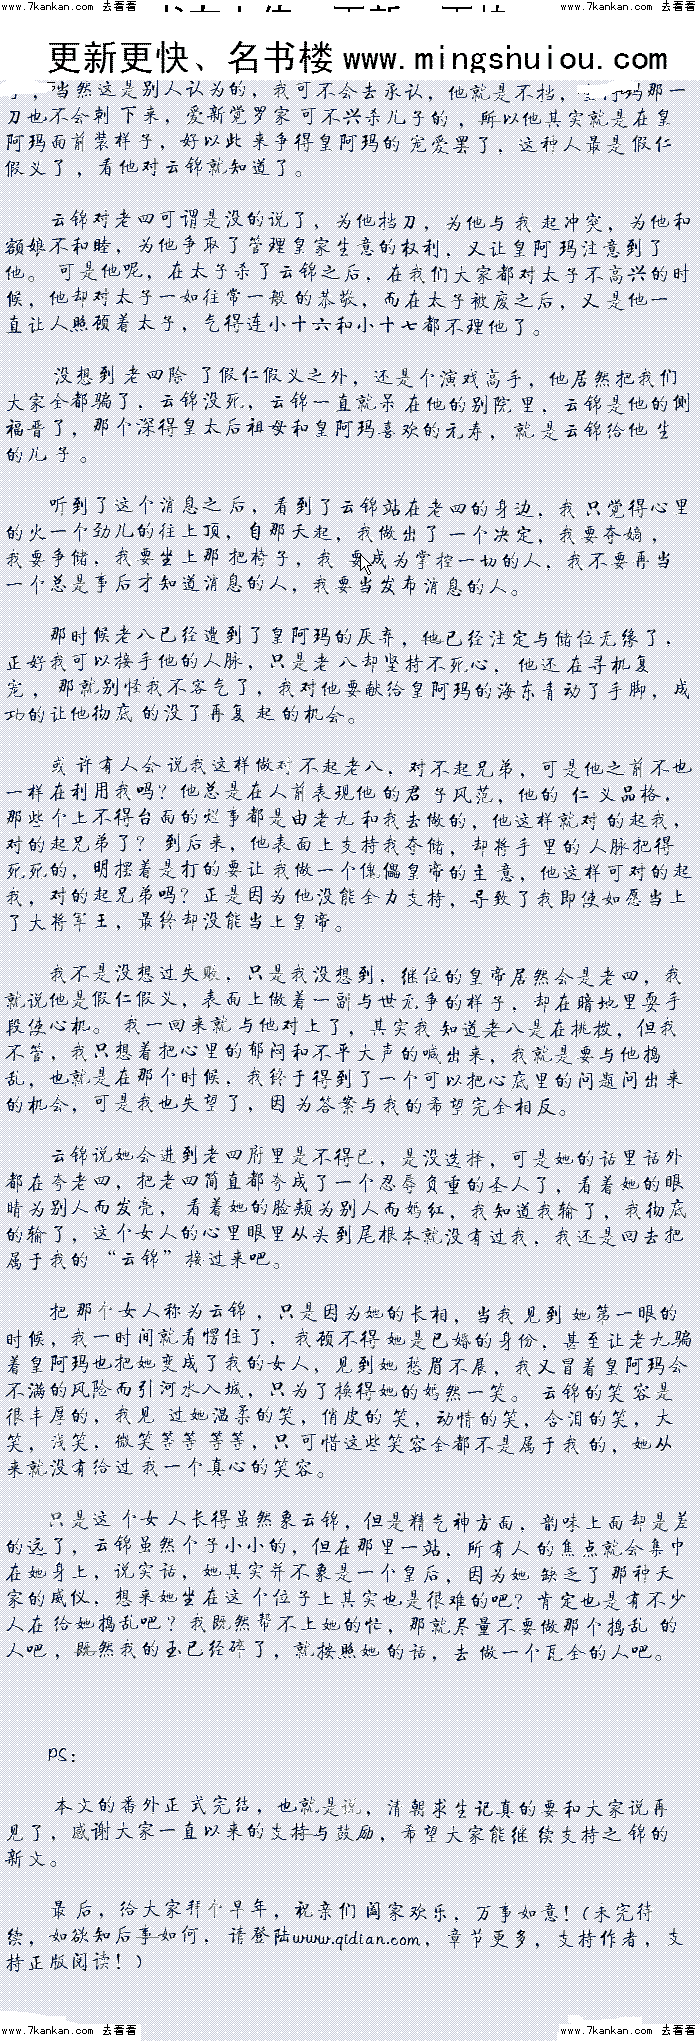 www.7kankan.com 去看看 www.7kankan.com 去看看
更新更快、名书楼 www.mingshuiou.com
了，当然这是别人认为的，我可不会去承认，他就是不挡，皇阿玛那一
刀也不会刺下来，爱新觉罗家可不兴杀儿子的，所以他其实就是在皇
阿玛面前装样子，好以此来争得皇阿玛的宠爱罢了，这种人最是假仁
假义了，看他对云锦就知道了。
云锦对老四可谓是没的说了，为他挡刀，为他与我起冲突，为他和
额娘不和睦，为他争取了管理皇家生意的权利，又让皇阿玛注意到了
他。可是他呢，在太子杀了云锦之后，在我们大家都对太子不高兴的时
候，他却对太子一如往常一般的恭敬，而在太子被废之后，又是他一
直让人照顾着太子，气得连小十六和小十七都不理他了。
没想到老四除了假仁假义之外，还是个演戏高手，他居然把我们
大家全都骗了，云锦没死，云锦一直就呆在他的别院里，云锦是他的侧
福晋了，那个深得皇太后祖母和皇阿玛喜欢的元寿，就是云锦给他生
的儿子。
听到了这个消息之后，看到了云锦站在老四的身边，我只觉得心里
的火一个劲儿的往上顶，自那天起，我做出了一个决定，我要夺嫡，
我要争储，我要坐上那把椅子，我要成为掌控一切的人，我不要再当
一个总是事后才知道消息的人，我要当发布消息的人。
那时候老八已经遭到了皇阿玛的厌弃，他已经注定与储位无缘了，
正好我可以接手他的人脉，只是老八却坚持不死心，他还在寻机复
宠，那就别怪我不客气了，我对他要献给皇阿玛的海东青动了手脚，成
功的让他彻底的没了再复起的机会。
或许有人会说我这样做对不起老八，对不起兄弟，可是他之前不也
一样在利用我吗？他总是在人前表现他的君子风范，他的仁义品格，
那些个上不得台面的烂事都是由老九和我去做的，他这样就对的起我，
对的起兄弟了？到后来，他表面上支持我夺储，却将手里的人脉把得
死死的，明摆着是打的要让我做一个傀儡皇帝的主意，他这样可对的起
我，对的起兄弟吗？正是因为他没能全力支持，导致了我即使如愿当上
了大将军王，最终却没能当上皇帝。
我不是没想过失败，只是我没想到，继位的皇帝居然会是老四，我
就说他是假仁假义，表面上做着一副与世无争的样子，却在暗地里耍手
段使心机。我一回来就与他对上了，其实我知道老八是在挑拨，但我
不管，我只想着把心里的郁闷和不平大声的喊出来，我就是要与他捣
乱，也就是在那个时候，我终于得到了一个可以把心底里的问题问出来
的机会，可是我也失望了，因为答案与我的希望完全相反。
云锦说她会进到老四府里是不得已，是没选择，可是她的话里话外
都在夸老四，把老四简直都夸成了一个忍辱负重的圣人了，看着她的眼
睛为别人而发亮，看着她的脸颊为别人而嫣红，我知道我输了，我彻底
的输了，这个女人的心里眼里从头到尾根本就没有过我，我还是回去把
属于我的“云锦”接过来吧。
把那个女人称为云锦，只是因为她的长相，当我见到她第一眼的
时候，我一时间就看愣住了，我顾不得她是已婚的身份，甚至让老九骗
着皇阿玛也把她变成了我的女人，见到她愁眉不展，我又冒着皇阿玛会
不满的风险而引河水入城，只为了换得她的嫣然一笑。云锦的笑容是
很丰厚的，我见过她温柔的笑，俏皮的笑，动情的笑，含泪的笑，大
笑，浅笑，微笑等等等等，只可惜这些笑容全都不是属于我的，她从
来就没有给过我一个真心的笑容。
只是这个女人长得虽然象云锦，但是精气神方面，韵味上面却是差
的远了，云锦虽然个子小小的，但在那里一站，所有人的焦点就会集中
在她身上，说实话，她其实并不象是一个皇后，因为她缺乏了那种天
家的威仪，想来她坐在这个位子上其实也是很难的吧？肯定也是有不少
人在给她捣乱吧？我既然帮不上她的忙，那就尽量不要做那个捣乱的
人吧，既然我的玉已经碎了，就按照她的话，去做一个瓦全的人吧。
PS：
本文的番外正式完结，也就是说，清朝求生记真的要和大家说再
见了，感谢大家一直以来的支持与鼓励，希望大家能继续支持之锦的
新文。
最后，给大家拜个早年，祝亲们阖家欢乐，万事如意！（未完待
续，如欲知后事如何，请登陆www.qidian.com，章节更多，支持作者，支
持正版阅读！）
www.7kankan.com 去看看 www.7kankan.com 去看看